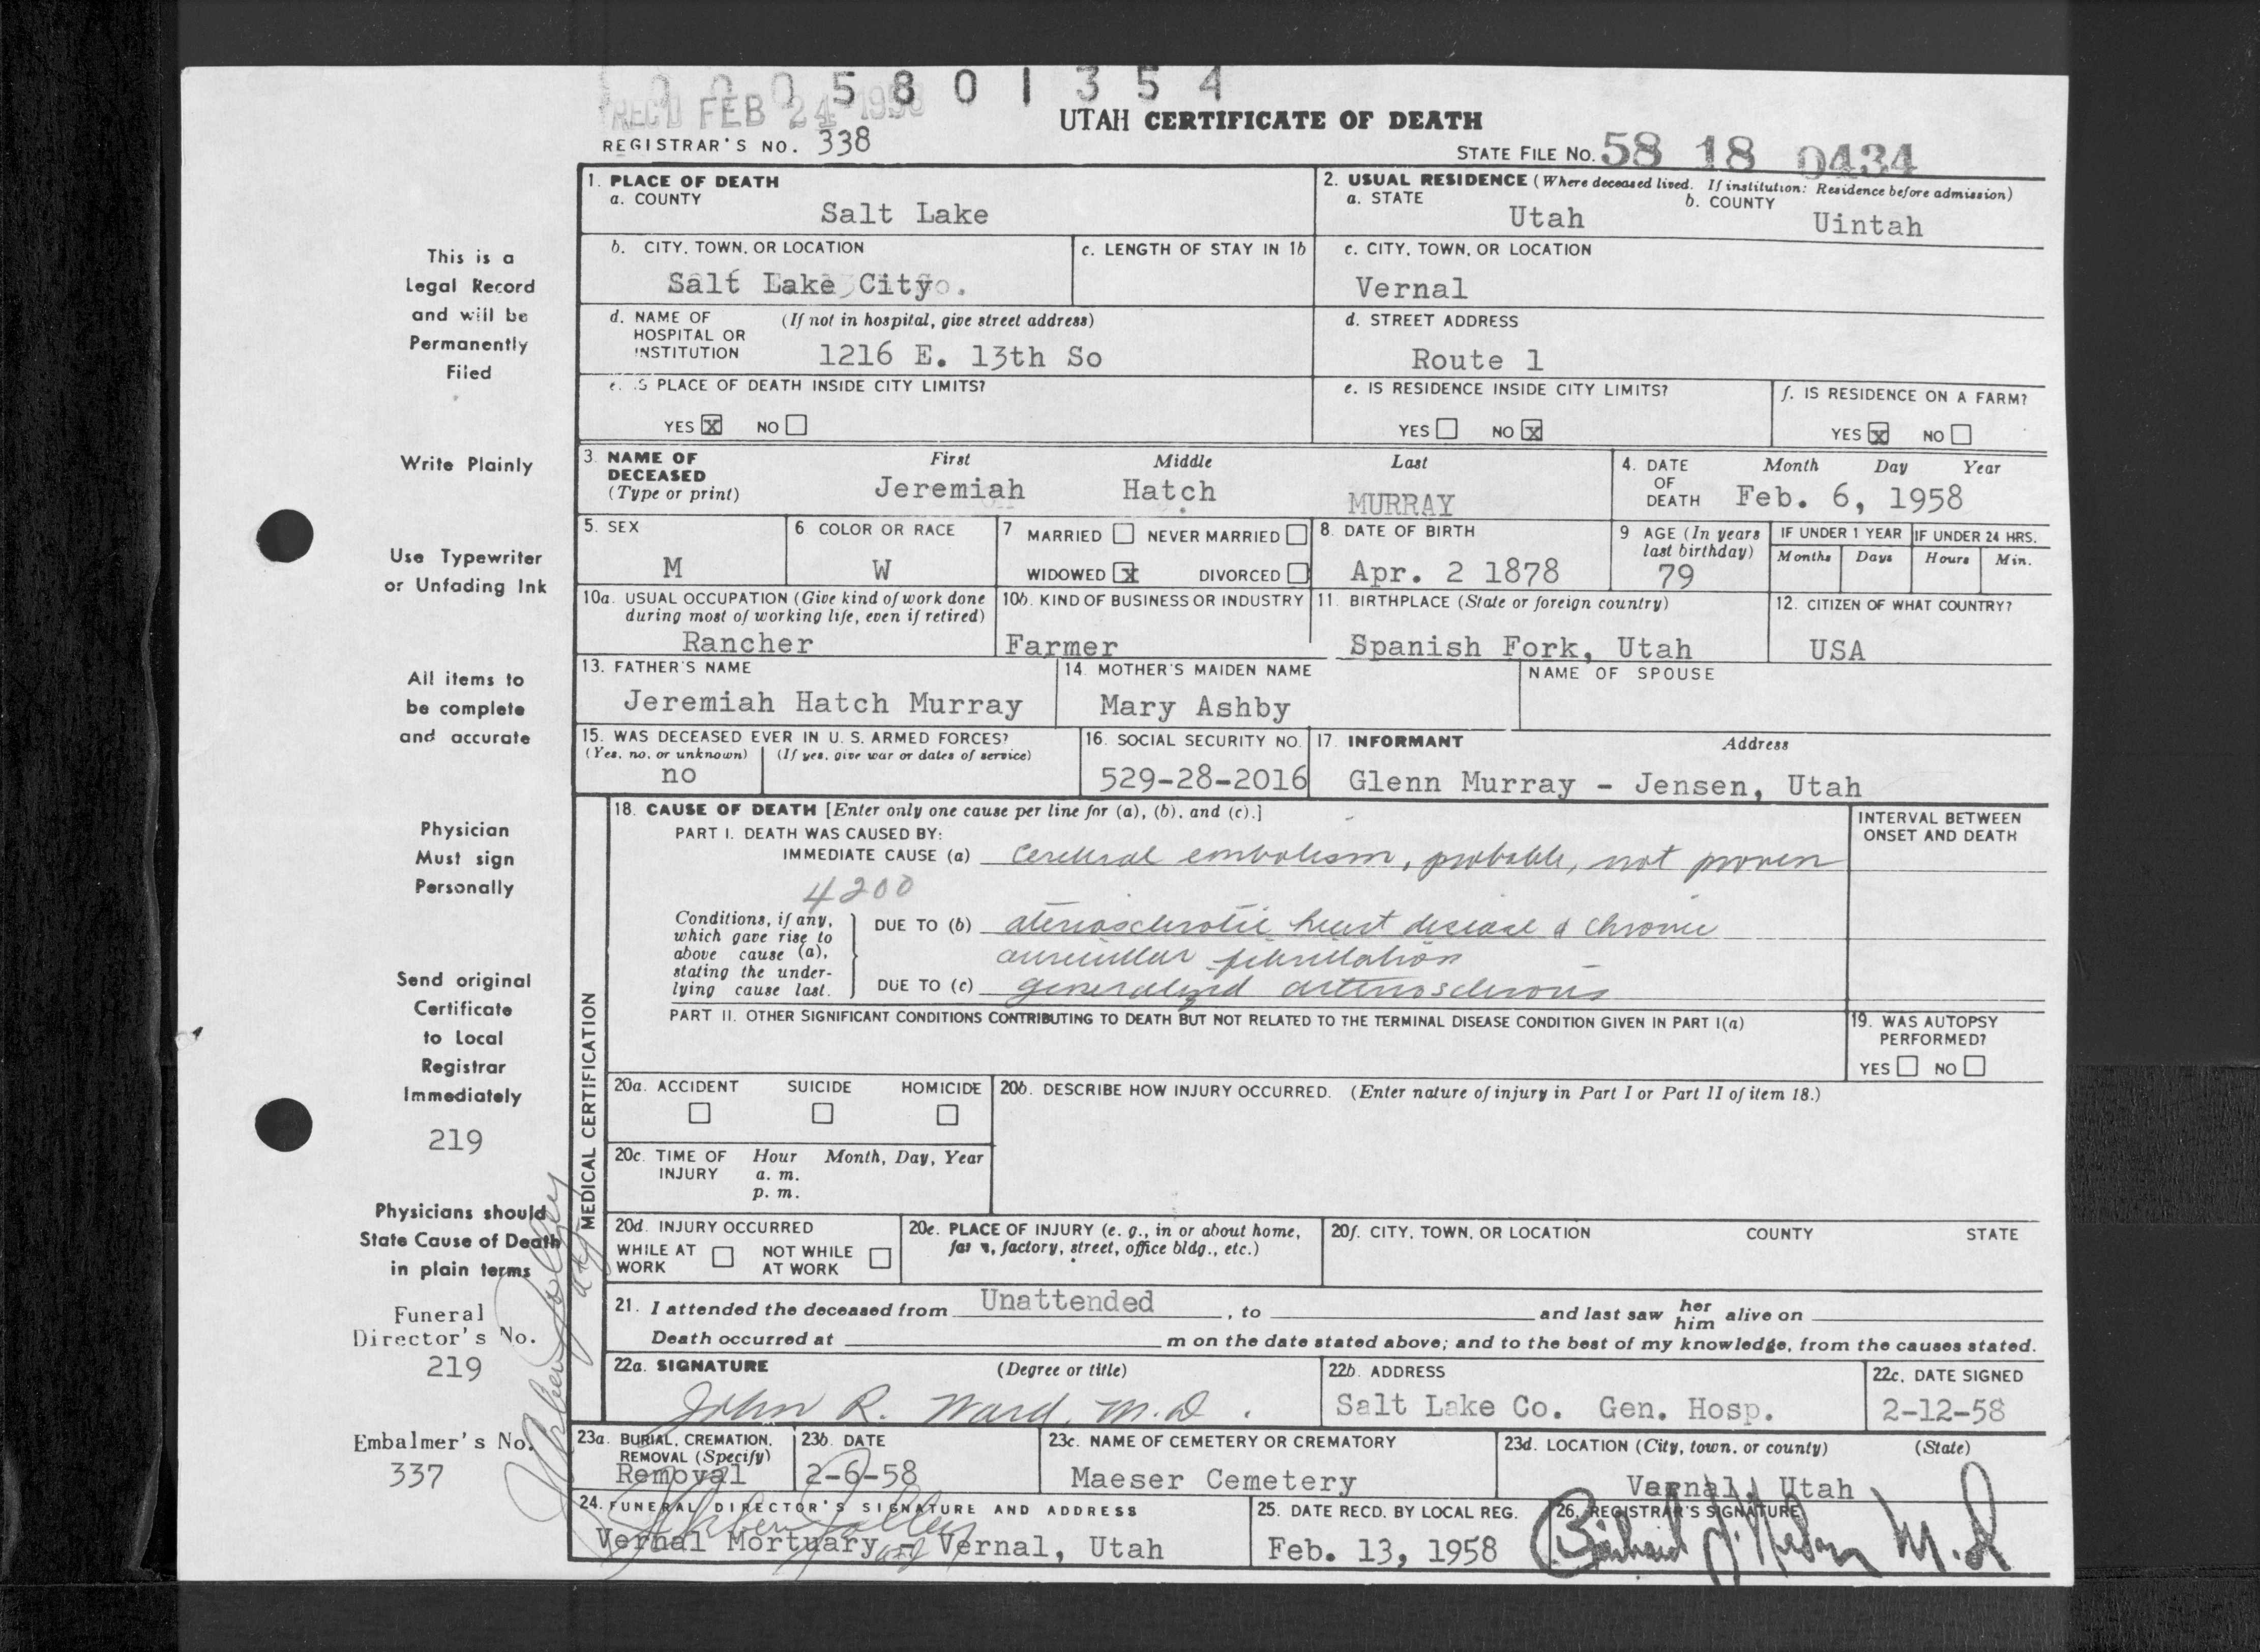 0 0 0 5 8 0 1 3 5 4
REC'D FEB 24 1958
UTAH CERTIFICATE OF DEATH
REGISTRAR'S NO. 338
STATE FILE NO. 58 18 0434
1. PLACE OF DEATH
a. COUNTY
Salt Lake
2. USUAL RESIDENCE (Where deceased lived. If institution: Residence before admission)
a. STATE
Utah
b. COUNTY
Uintah
b. CITY, TOWN, OR LOCATION
Salt Lake City
c. LENGTH OF STAY IN 1b
c. CITY, TOWN, OR LOCATION
Vernal
d. NAME OF HOSPITAL OR INSTITUTION
(If not in hospital, give street address)
1216 E. 13th So
d. STREET ADDRESS
Route 1
e. IS PLACE OF DEATH INSIDE CITY LIMITS?
YES X NO
e. IS RESIDENCE INSIDE CITY LIMITS?
YES NO X
f. IS RESIDENCE ON A FARM?
YES X NO
3. NAME OF DECEASED
(Type or print)
First Middle Last
Jeremiah Hatch MURRAY
4. DATE OF DEATH
Month Day Year
Feb. 6, 1958
5. SEX
M
6 COLOR OR RACE
W
7 MARRIED NEVER MARRIED
WIDOWED X DIVORCED
8. DATE OF BIRTH
Apr. 2 1878
9 AGE (In years last birthday)
79
IF UNDER 1 YEAR
Months Days
IF UNDER 24 HRS.
Hours Min.
10a. USUAL OCCUPATION (Give kind of work done during most of working life, even if retired)
Rancher
10b. KIND OF BUSINESS OR INDUSTRY
Farmer
11. BIRTHPLACE (State or foreign country)
Spanish Fork, Utah
12. CITIZEN OF WHAT COUNTRY?
USA
13. FATHER'S NAME
Jeremiah Hatch Murray
14. MOTHER'S MAIDEN NAME
Mary Ashby
NAME OF SPOUSE
15. WAS DECEASED EVER IN U. S. ARMED FORCES?
(Yes, no, or unknown) (If yes, give war or dates of service)
no
16. SOCIAL SECURITY NO.
529-28-2016
17. INFORMANT Address
Glenn Murray - Jensen, Utah
MEDICAL CERTIFICATION
18. CAUSE OF DEATH [Enter only one cause per line for (a), (b), and (c).]
INTERVAL BETWEEN ONSET AND DEATH
PART I. DEATH WAS CAUSED BY:
IMMEDIATE CAUSE (a) Cerebral embolism, probable, not proven
4200
Conditions, if any, which gave rise to above cause (a), stating the underlying cause last.
DUE TO (b) ateriosclerotic heart disease & chronic
auricular fibrillation
DUE TO (c) generalized arteriosclerosis
PART II. OTHER SIGNIFICANT CONDITIONS CONTRIBUTING TO DEATH BUT NOT RELATED TO THE TERMINAL DISEASE CONDITION GIVEN IN PART I(a)
19. WAS AUTOPSY PERFORMED?
YES NO
20a. ACCIDENT SUICIDE HOMICIDE
20b. DESCRIBE HOW INJURY OCCURRED. (Enter nature of injury in Part I or Part II of item 18.)
20c. TIME OF INJURY
Hour Month, Day, Year
a. m.
p. m.
20d. INJURY OCCURRED
WHILE AT WORK NOT WHILE AT WORK
20e. PLACE OF INJURY (e. g., in or about home, farm, factory, street, office bldg., etc.)
20f. CITY, TOWN, OR LOCATION COUNTY STATE
21. I attended the deceased from Unattended, to and last saw her him alive on
Death occurred at m on the date stated above; and to the best of my knowledge, from the causes stated.
22a. SIGNATURE (Degree or title)
John R. Ward, M.D.
22b. ADDRESS
Salt Lake Co. Gen. Hosp.
22c. DATE SIGNED
2-12-58
23a. BURIAL, CREMATION, REMOVAL (Specify)
Removal
23b. DATE
2-6-58
23c. NAME OF CEMETERY OR CREMATORY
Maeser Cemetery
23d. LOCATION (City, town, or county) (State)
Vernal, Utah
24. FUNERAL DIRECTOR'S SIGNATURE AND ADDRESS
Vernal Mortuary - Vernal, Utah
25. DATE RECD. BY LOCAL REG.
Feb. 13, 1958
26. REGISTRAR'S SIGNATURE
M.D.
This is a
Legal Record
and will be
Permanently
Filed
Write Plainly
Use Typewriter
or Unfading Ink
All items to
be complete
and accurate
Physician
Must sign
Personally
Send original
Certificate
to Local
Registrar
Immediately
219
Physicians should
State Cause of Death
in plain terms
Funeral
Director's No.
219
Embalmer's No.
337